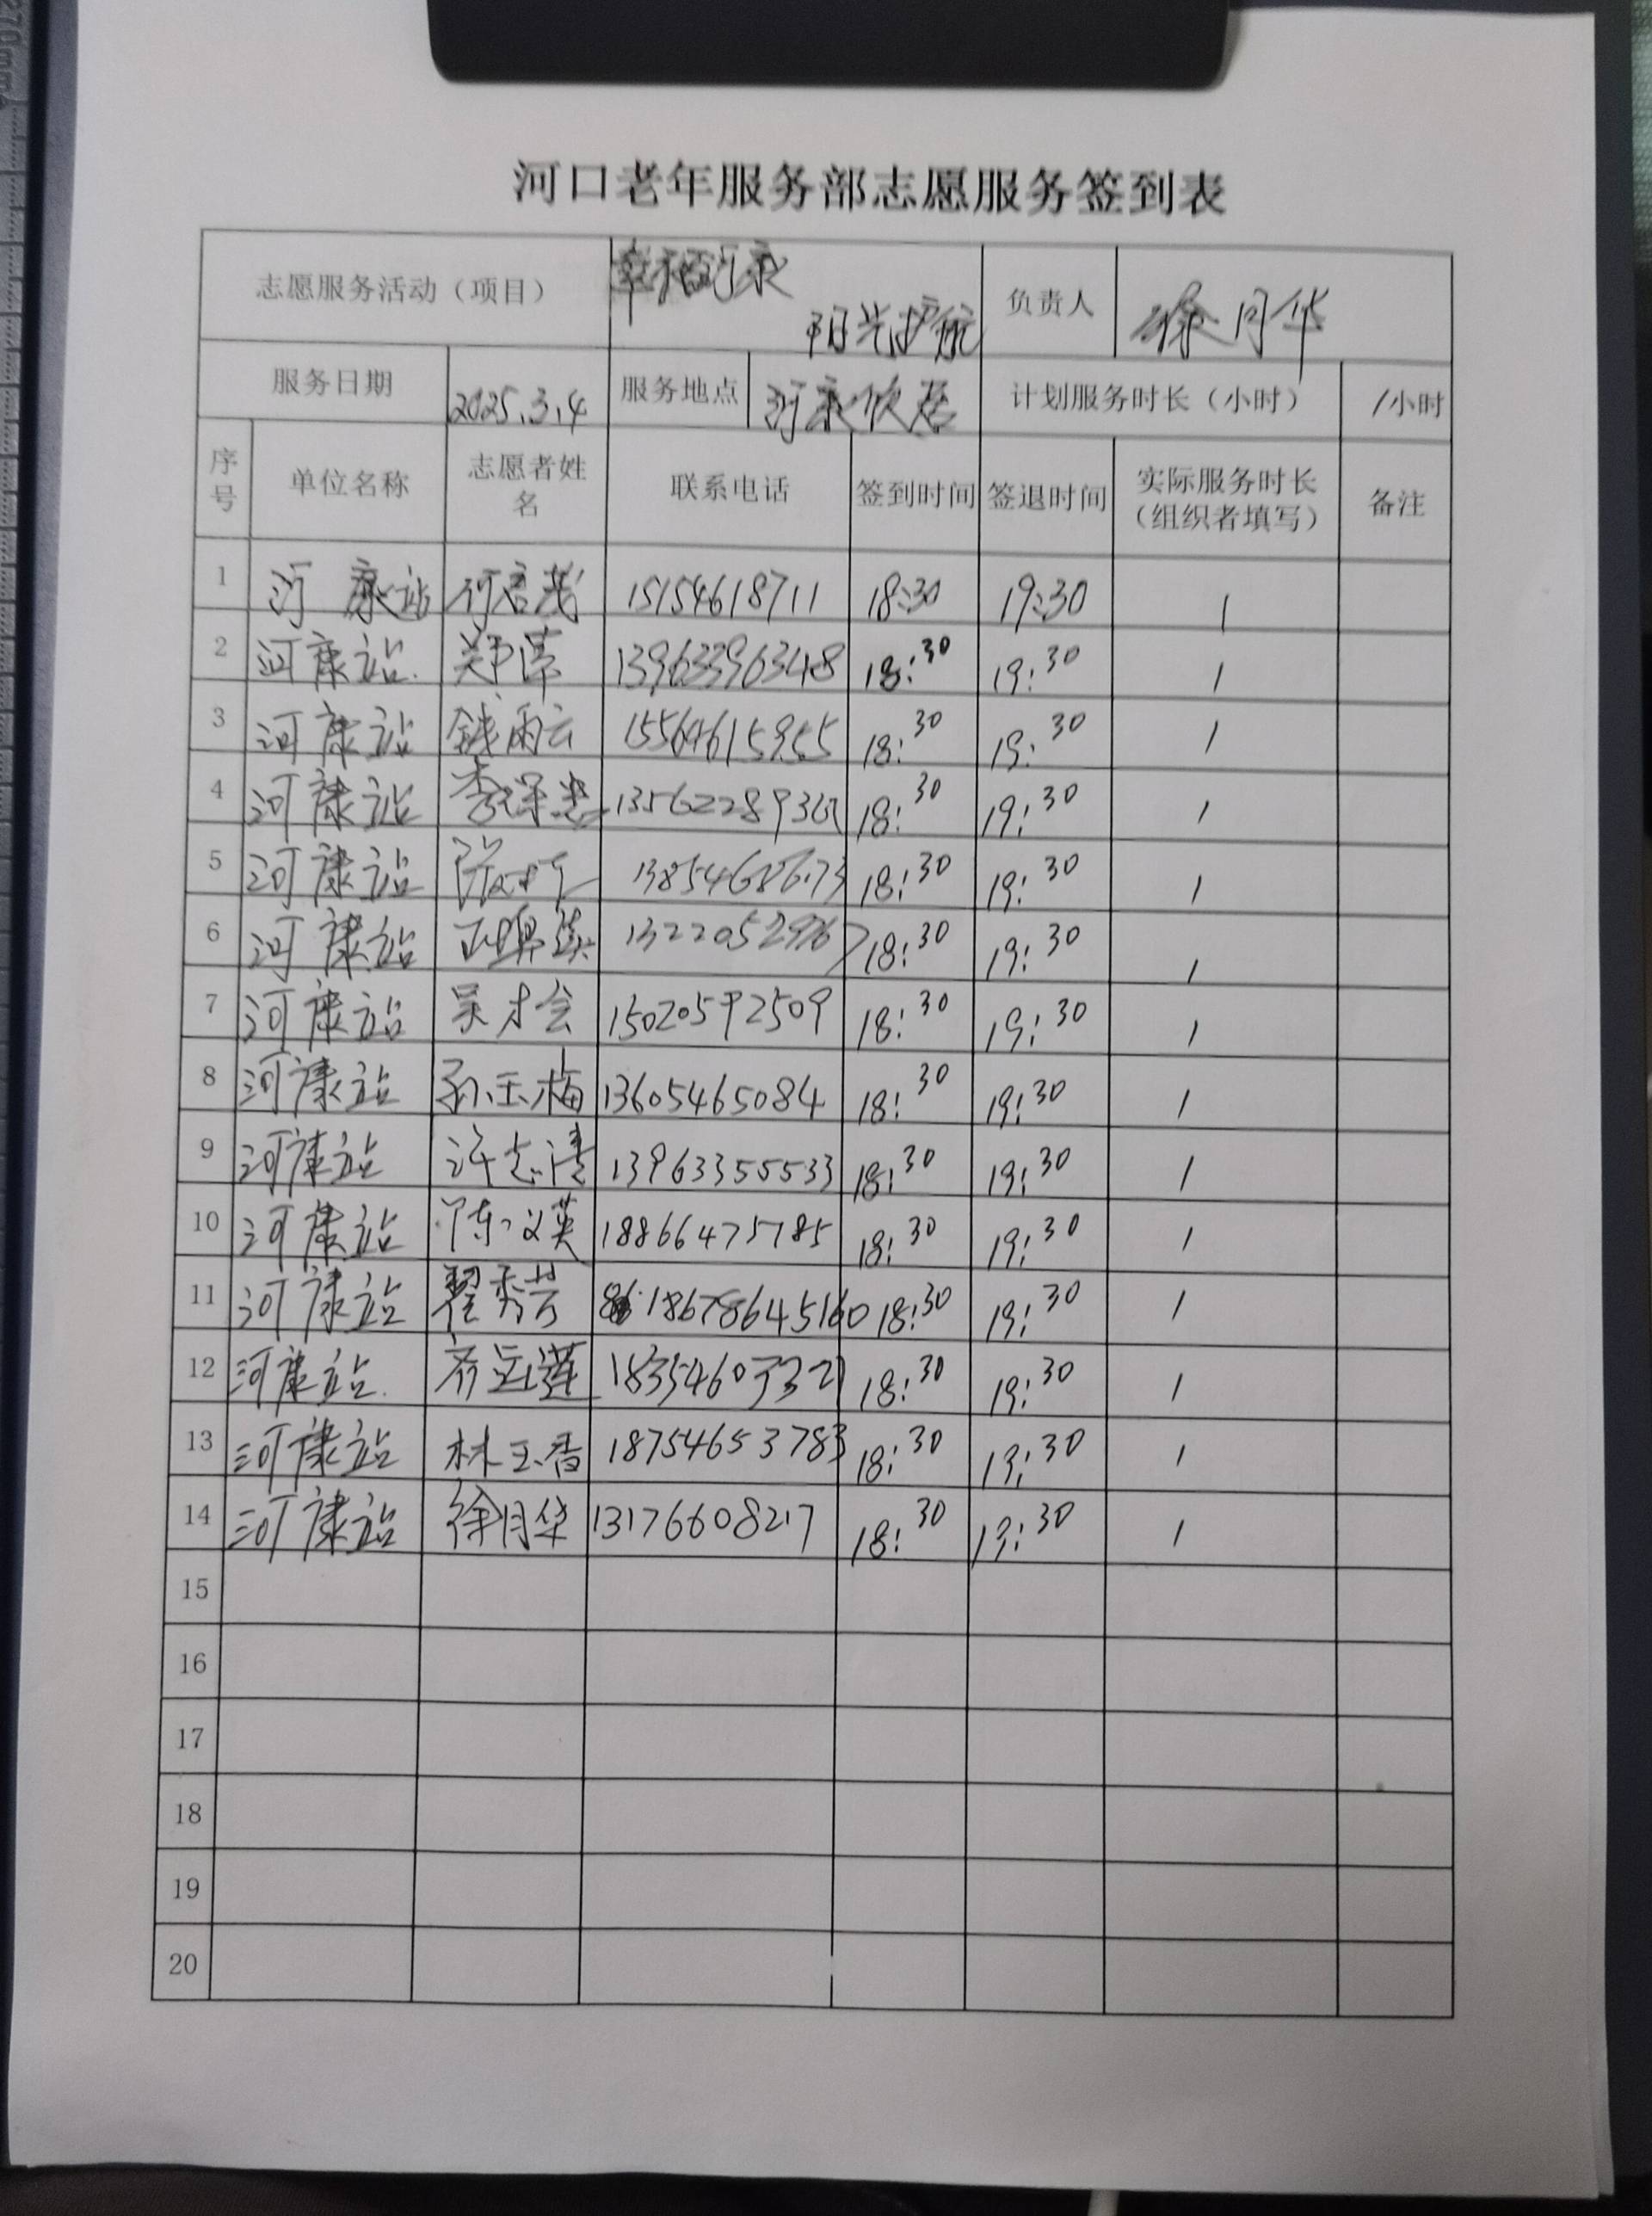 河口老年服务部志愿服务签到表
志愿服务活动（项目） 幸福河康 阳光护航 负责人 徐月华
服务日期 2025.3.4 服务地点 河康欣居 计划服务时长（小时） 1小时
序号 单位名称 志愿者姓名 联系电话 签到时间 签退时间 实际服务时长（组织者填写） 备注
1 河康站 15154618711 18:30 19:30 1
2 河康站. 郑萍 13963396348 18:30 19:30 1
3 河康站 钱雨云 15564615955 18:30 19:30 1
4 河康站 李保忠 18:30 19:30 1
5 河康站 18:30 19:30 1
6 河康站 18:30 19:30 1
7 河康站 吴才会 15020592509 18:30 19:30 1
8 河康站 孙玉梅 13605465084 18:30 19:30 1
9 河康站 许志清 13963355533 18:30 19:30 1
10 河康站 陈文英 18866475785 18:30 19:30 1
11 河康站 翟秀芳 18678645160 18:30 19:30 1
12 河康站. 齐立莲 18:30 19:30 1
13 河康站 林玉香 18754653783 18:30 19:30 1
14 河康站 徐月华 13176608217 18:30 19:30 1
15
16
17
18
19
20